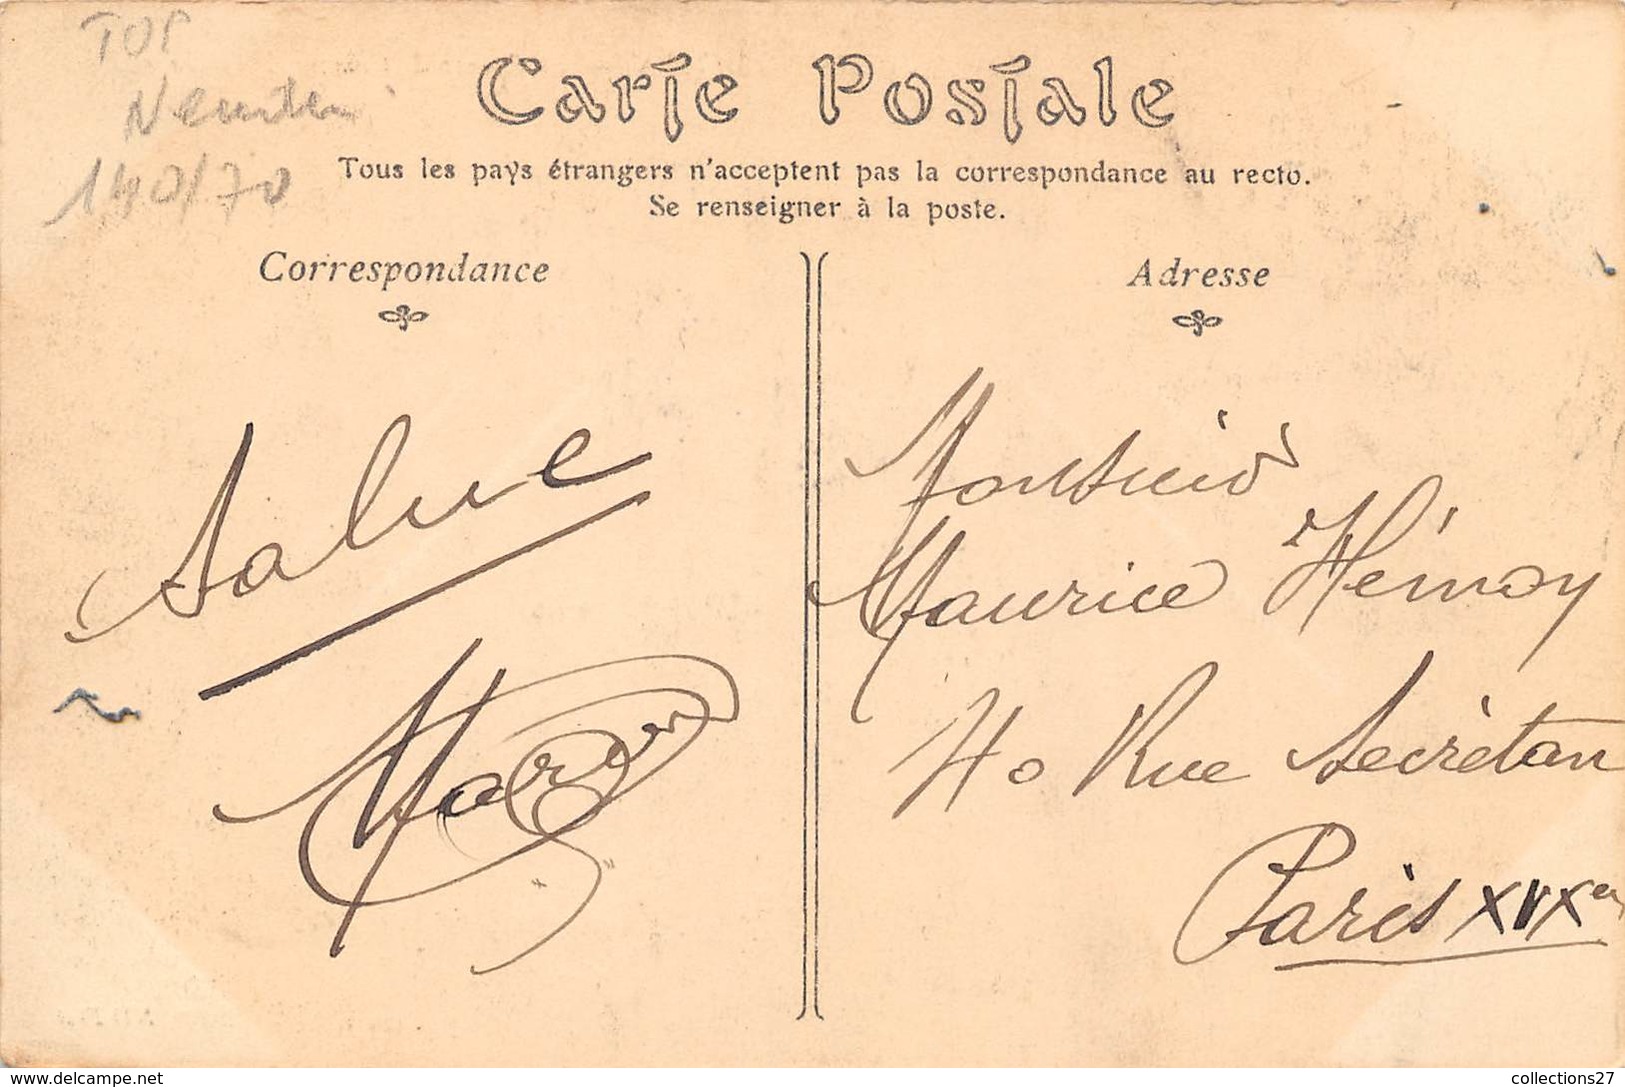 TOP
140/70
Carte Postale
Tous les pays étrangers n'acceptent pas la correspondance au recto.
Se renseigner à la poste.
Correspondance
Adresse
Salue
Monsieur
Maurice Hémoy
40 Rue Secrètan
Paris XIXe
www.delcampe.net
collections27